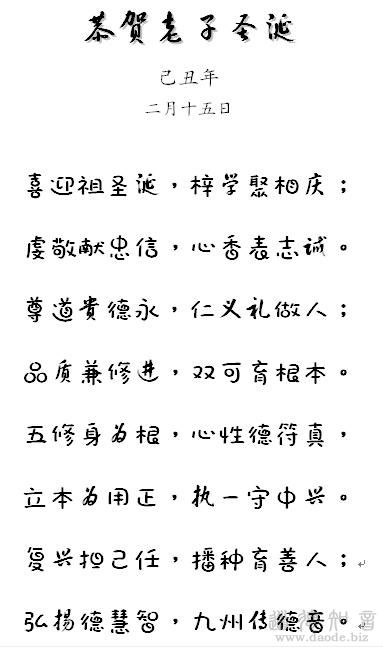 恭贺老子圣诞
己丑年
二月十五日
喜迎祖圣诞，梓学聚相庆；
虔敬献忠信，心香表志诚。
尊道贵德永，仁义礼做人；
品质兼修进，双可育根本。
五修身为根，心性德符真，
立本为用正，执一守中兴。
复兴担己任，播种育善人；
弘扬德慧智，九州传德音。
www.daode.cn